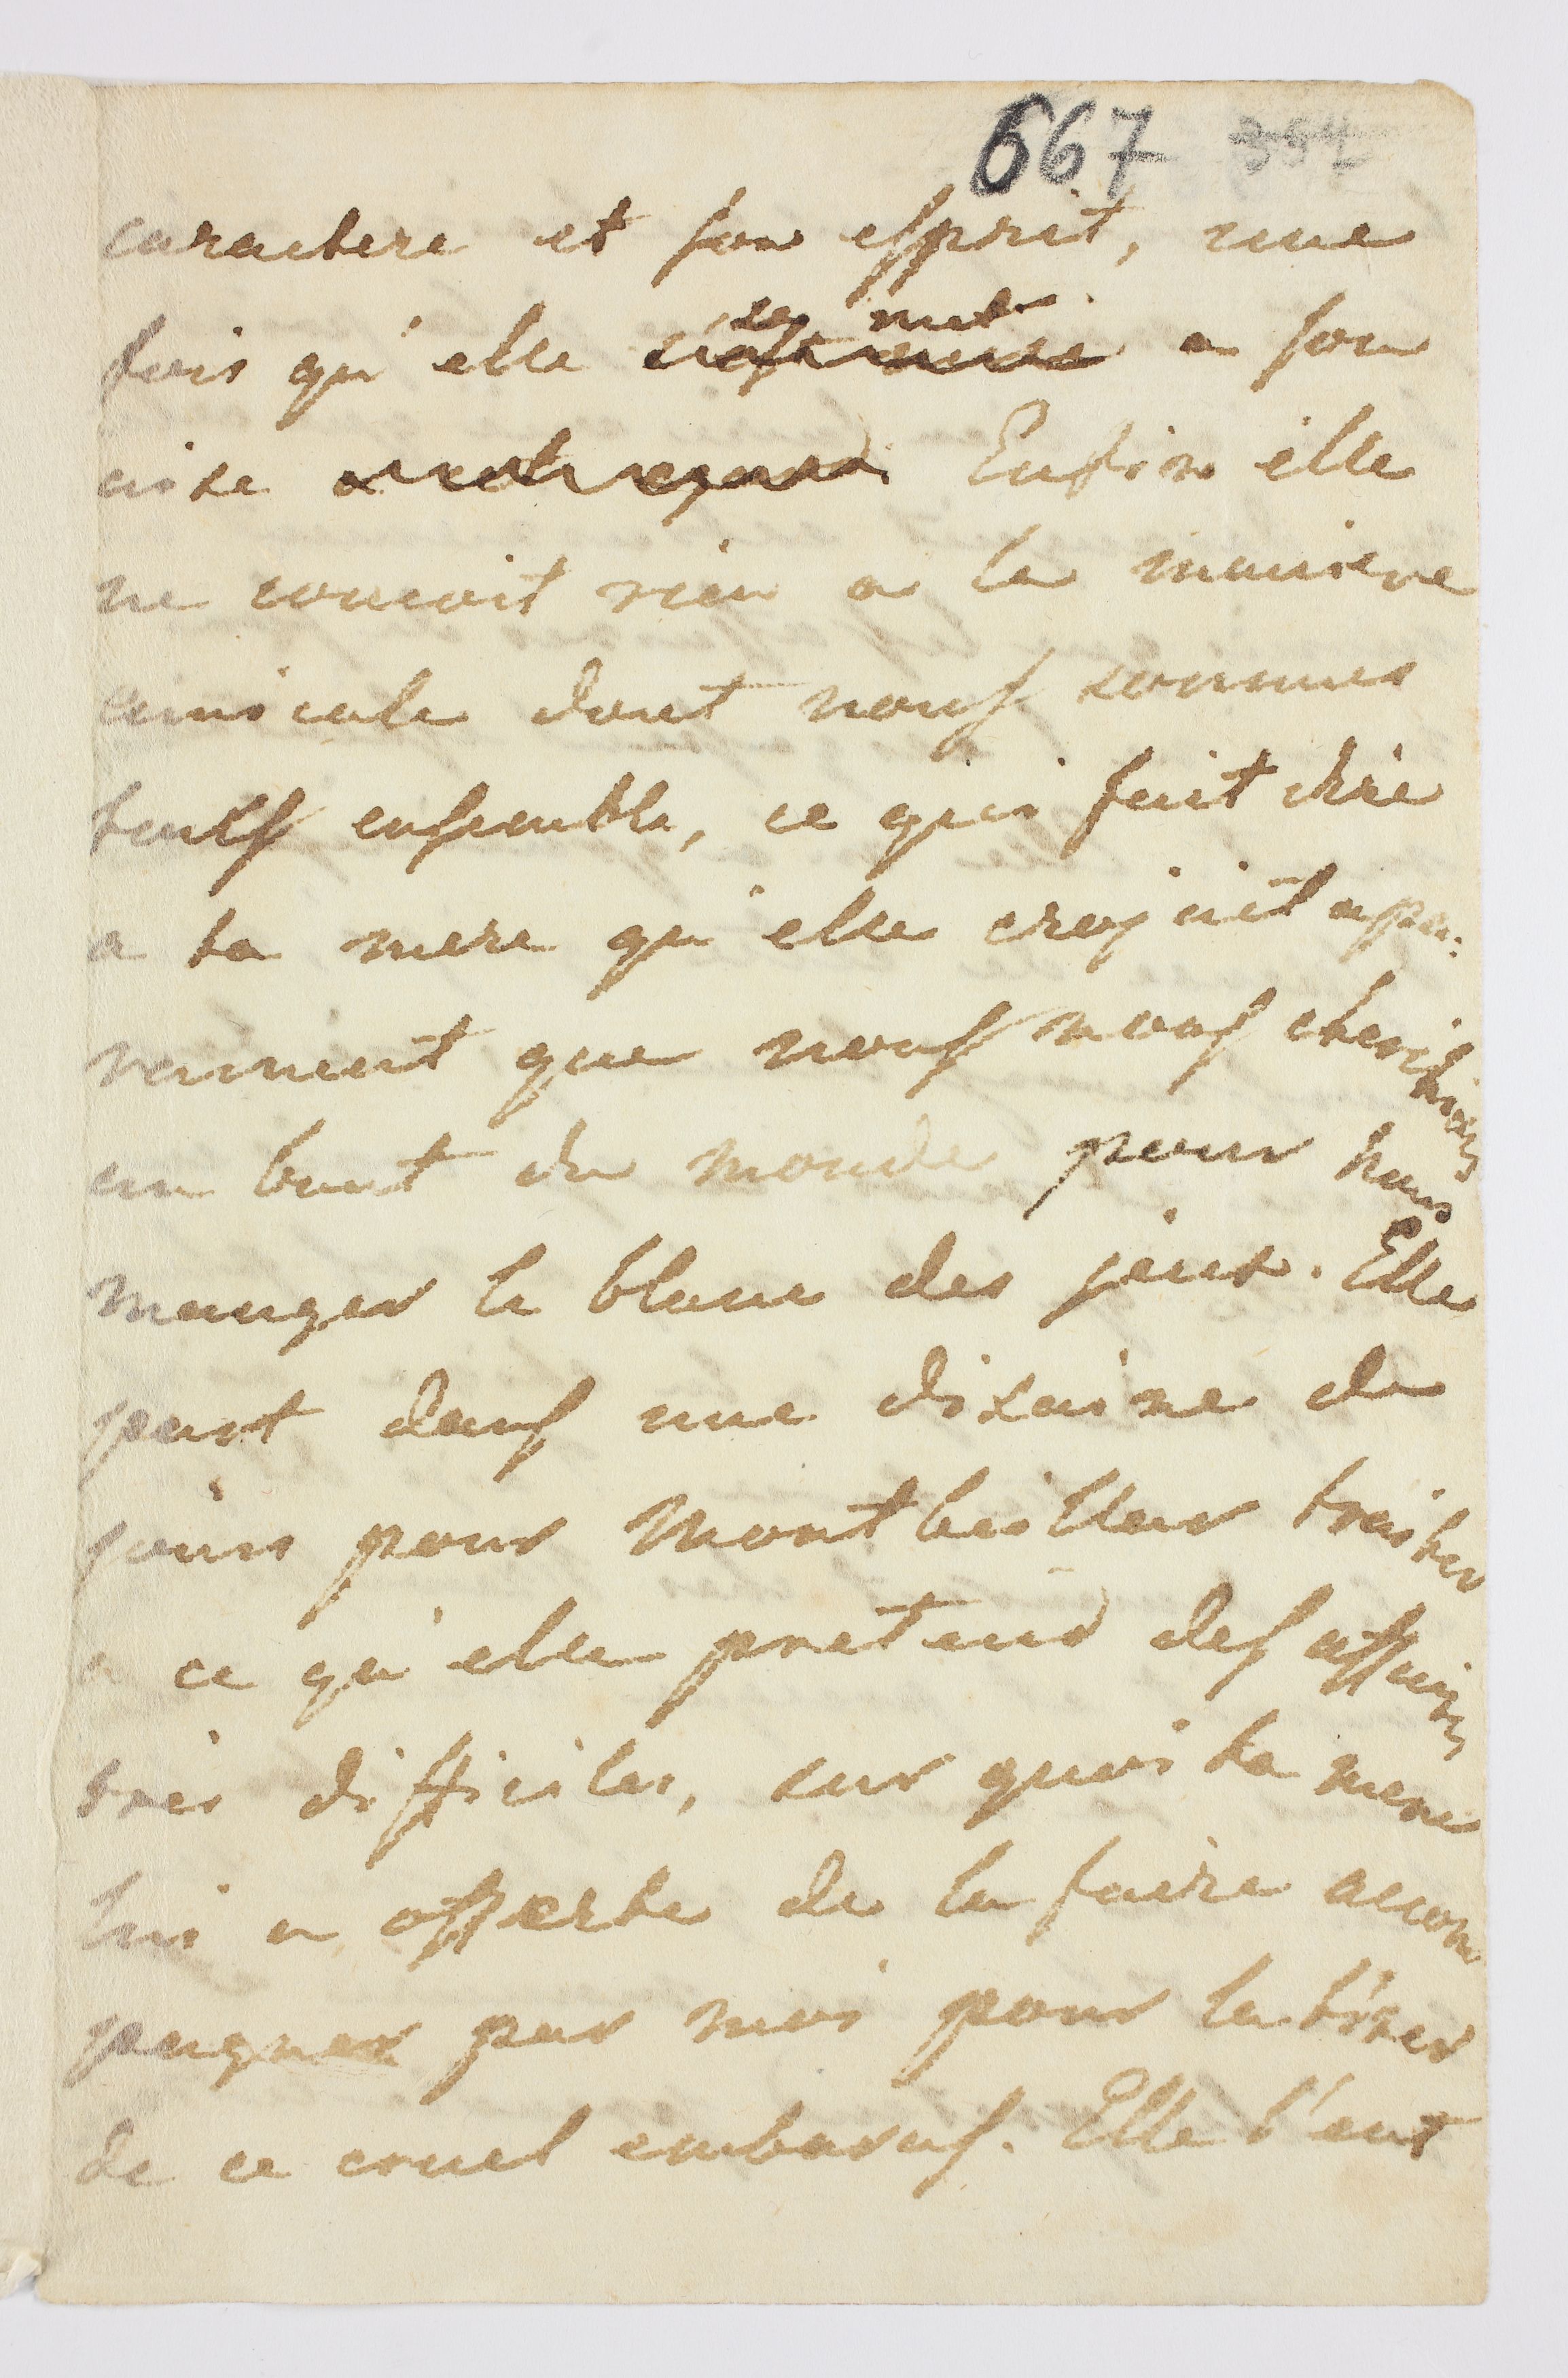 667 354
caractere et son esprit, une
fois qu'elle se met a son
aise Enfin elle
ne concoit rien a la maniere
amicale dont nous sommes
touts ensemble, ce qui fait dire
a ta mere qu'elle croyait appa:
remment que nous nous cherchions
au bout du monde pour nous
manger le blanc des jeux. Elle
part dans une disaine de
jours pour Montbeillar traiter
a ce qu'elle pretend des affaires
tres difficiles, sur quoi ta mere
lui a offerte de la faire accom
pagner par moi pour la tirer
de ce cruel embaras. Elle l'eut